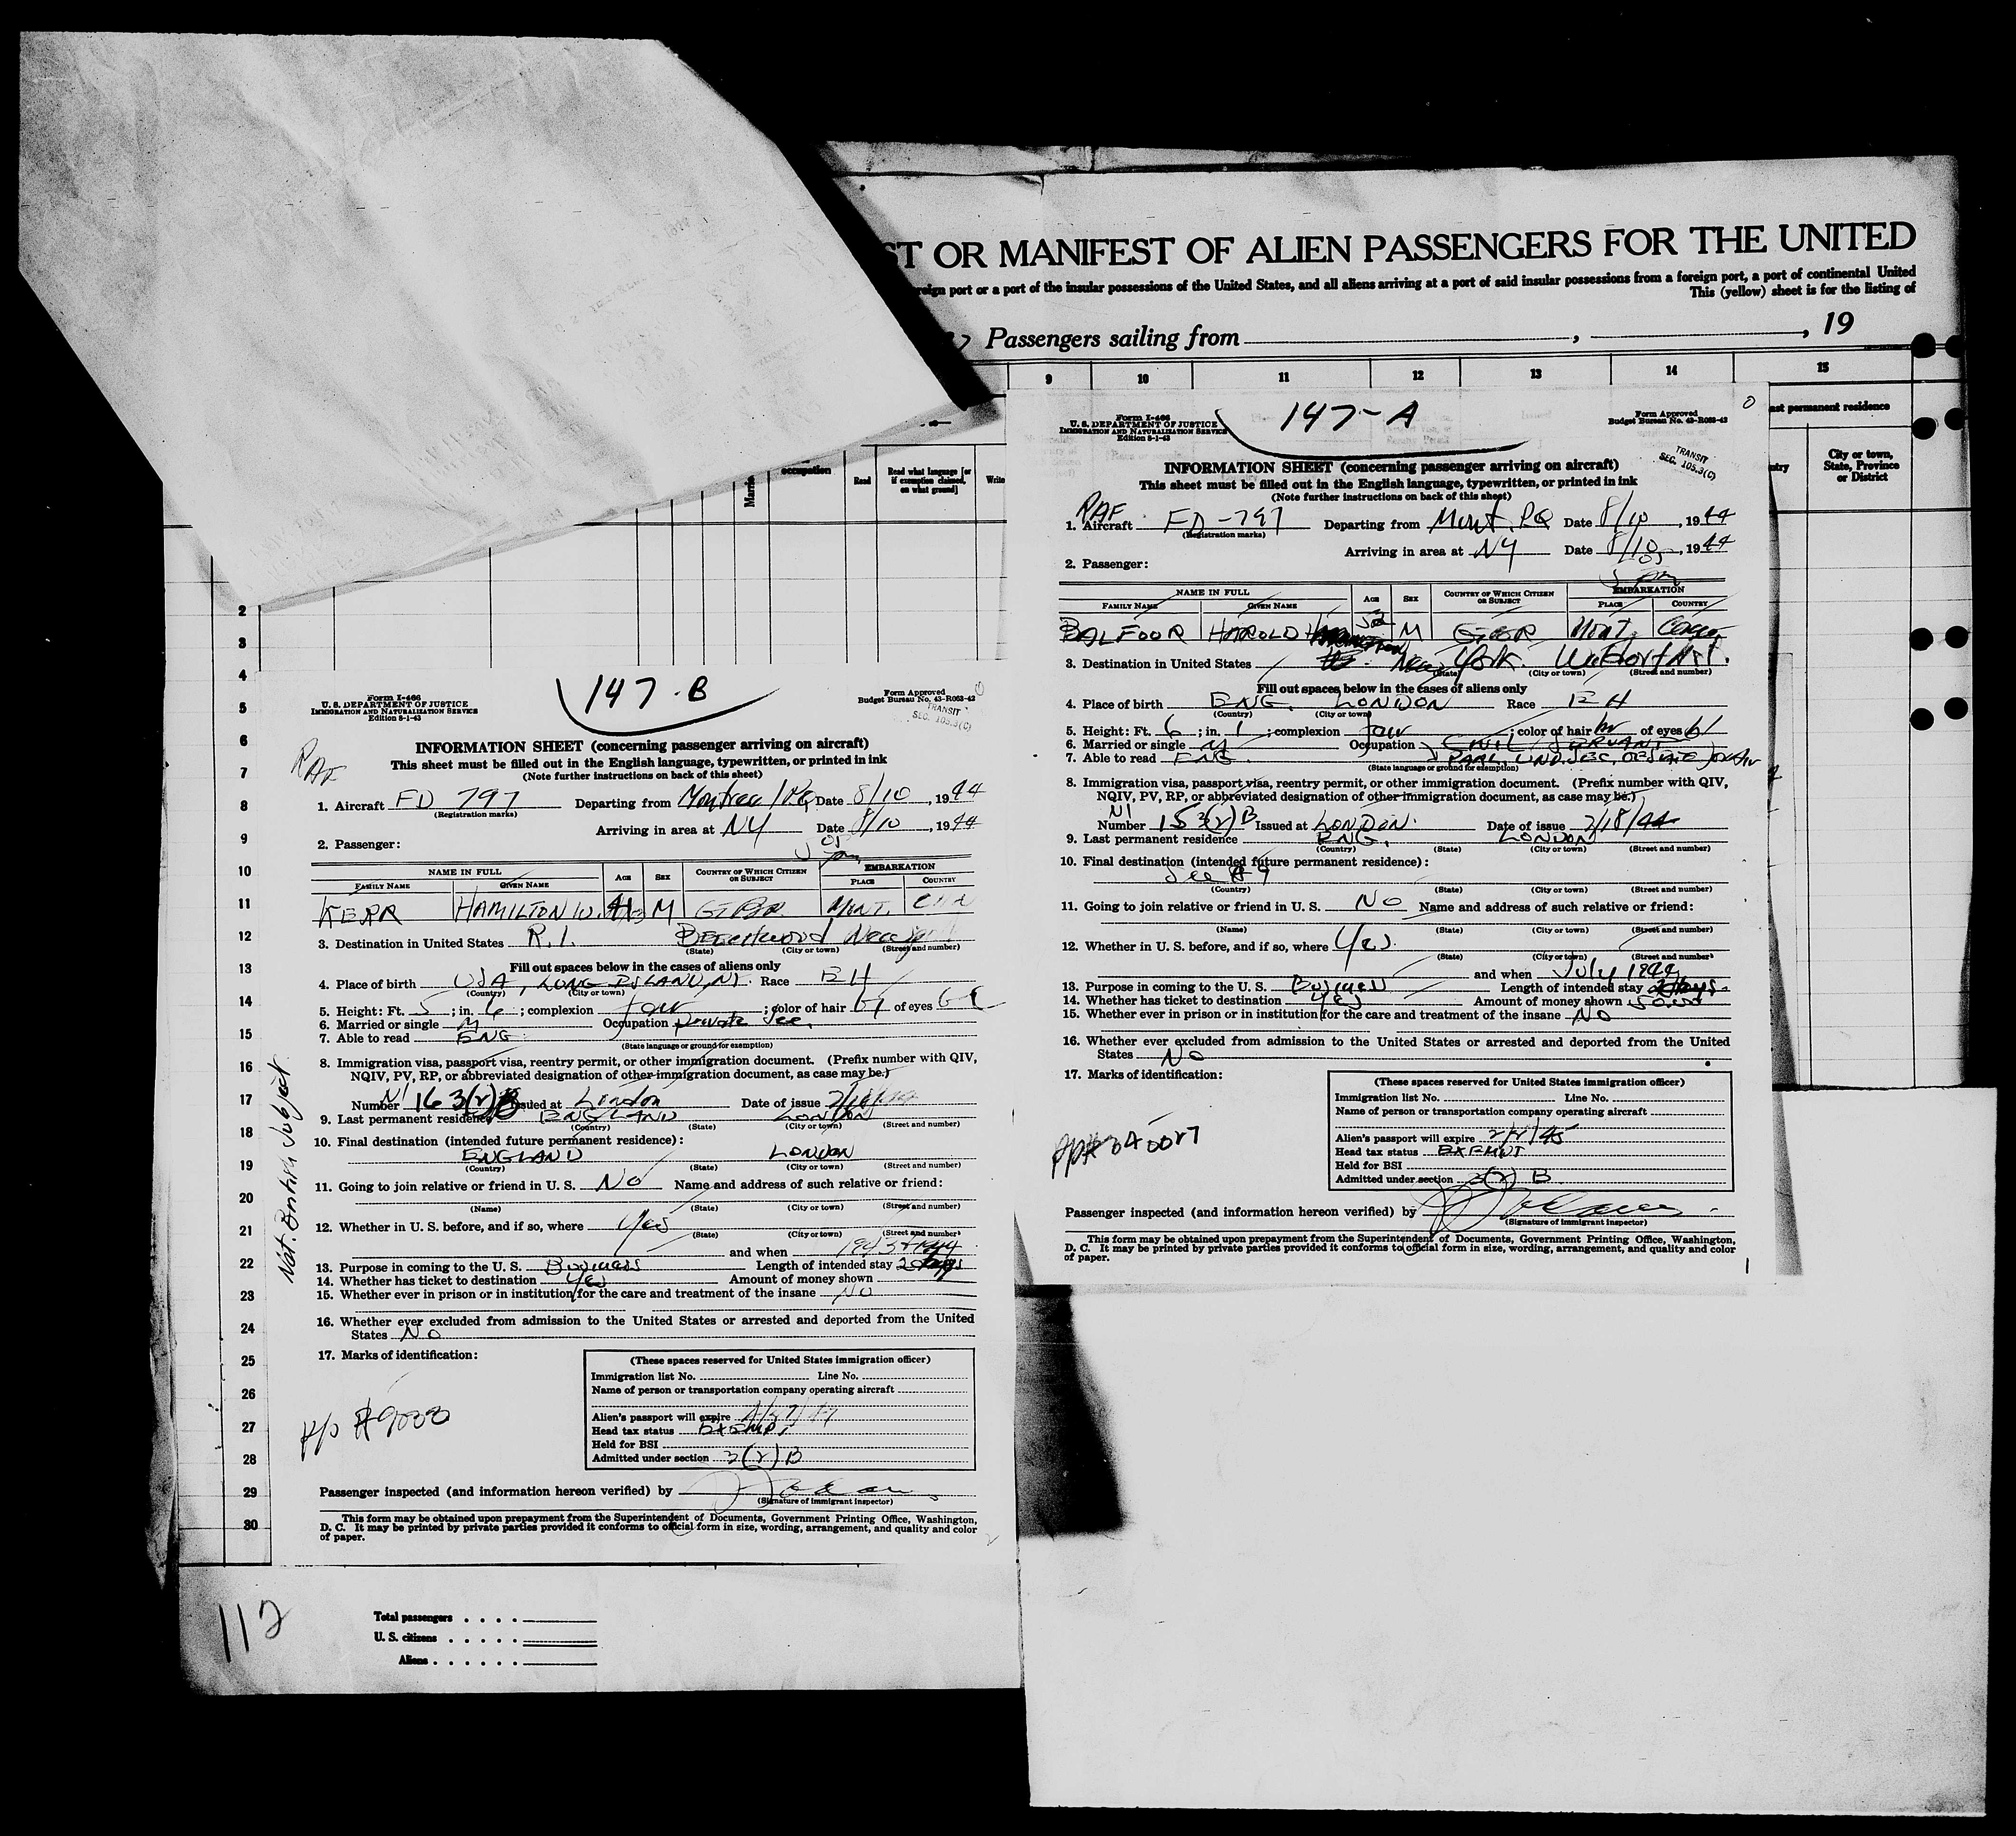 ST OR MANIFEST OF ALIEN PASSENGERS FOR THE UNITED
reign port or a port of the insular possessions of the United States, and all aliens arriving at a port of said insular possessions from a foreign port, a port of continental United
This (yellow) sheet is for the listing of
Passengers sailing from , , 19
9 10 11 12 13 14 15
ast permanent residence
ntry City or town, State, Province or District
occupation
Married
Read Read what language [or if exemption claimed, on what ground] Write
2
3
4
5
6
7
8
9
10
11
12
13
14
15
16
17
18
19
20
21
22
23
24
25
26
27
28
29
30
112
Total passengers . . . .
U. S. citizens . . . . .
Aliens . . . . . .
147-B
Form I-466
U. S. DEPARTMENT OF JUSTICE
IMMIGRATION AND NATURALIZATION SERVICE
Edition 8-1-43
Form Approved
Budget Bureau No. 43-R063-42
TRANSIT
SEC. 105.3(C)
INFORMATION SHEET (concerning passenger arriving on aircraft)
This sheet must be filled out in the English language, typewritten, or printed in ink
(Note further instructions on back of this sheet)
RAF
1. Aircraft FD 797 Departing from Montreal PQ Date 8/10, 1944
(Registration marks)
Arriving in area at NY Date 8/10, 1944
2. Passenger:
NAME IN FULL AGE SEX COUNTRY OF WHICH CITIZEN OR SUBJECT EMBARKATION
FAMILY NAME GIVEN NAME PLACE COUNTRY
KERR HAMILTON W. M GTBR MONT.
3. Destination in United States R.I. Beechwood
(State) (City or town) (Street and number)
Fill out spaces below in the cases of aliens only
4. Place of birth USA, LONG ISLAND, NY. Race BH
(Country) (City or town)
5. Height: Ft. 5; in. 6; complexion fair; color of hair of eyes
6. Married or single M Occupation private Sec.
7. Able to read ENG
(State language or ground for exemption)
8. Immigration visa, passport visa, reentry permit, or other immigration document. (Prefix number with QIV,
NQIV, PV, RP, or abbreviated designation of other immigration document, as case may be.)
Number 16 3(r)B Issued at London Date of issue
9. Last permanent residence ENGLAND LONDON
(Country) (State) (City or town) (Street and number)
10. Final destination (intended future permanent residence):
ENGLAND LONDON
(Country) (State) (City or town) (Street and number)
11. Going to join relative or friend in U. S. No Name and address of such relative or friend:
(Name) (State) (City or town) (Street and number)
12. Whether in U. S. before, and if so, where Yes
(State) (City or town) (Street and number)
and when 1943 + 1944
13. Purpose in coming to the U. S. Business Length of intended stay
14. Whether has ticket to destination Yes Amount of money shown
15. Whether ever in prison or in institution for the care and treatment of the insane NO
16. Whether ever excluded from admission to the United States or arrested and deported from the United
States NO
17. Marks of identification:
Nat. British Subject
(These spaces reserved for United States immigration officer)
Immigration list No. Line No.
Name of person or transportation company operating aircraft
Alien's passport will expire
Head tax status EXEMPT
Held for BSI
Admitted under section 3(r)B
Passenger inspected (and information hereon verified) by
(Signature of immigrant inspector)
This form may be obtained upon prepayment from the Superintendent of Documents, Government Printing Office, Washington,
D. C. It may be printed by private parties provided it conforms to official form in size, wording, arrangement, and quality and color
of paper.
147-A
Form I-466
U. S. DEPARTMENT OF JUSTICE
IMMIGRATION AND NATURALIZATION SERVICE
Edition 8-1-43
Form Approved
Budget Bureau No. 43-R063-42
TRANSIT
SEC. 105.3(C)
INFORMATION SHEET (concerning passenger arriving on aircraft)
This sheet must be filled out in the English language, typewritten, or printed in ink
(Note further instructions on back of this sheet)
RAF
1. Aircraft FD-797 Departing from Mont. PQ Date 8/10, 1944
(Registration marks)
Arriving in area at NY Date 8/10, 1944
2. Passenger:
NAME IN FULL AGE SEX COUNTRY OF WHICH CITIZEN OR SUBJECT EMBARKATION
FAMILY NAME GIVEN NAME PLACE COUNTRY
BALFOUR HAROLD M GTBR MONT.
3. Destination in United States New York.
(State) (City or town) (Street and number)
Fill out spaces below in the cases of aliens only
4. Place of birth ENG. LONDON Race BH
(Country) (City or town)
5. Height: Ft. 6; in. 1; complexion fair; color of hair br of eyes bl
6. Married or single M Occupation CIVIL SERVANT
7. Able to read ENG.
(State language or ground for exemption)
8. Immigration visa, passport visa, reentry permit, or other immigration document. (Prefix number with QIV,
NQIV, PV, RP, or abbreviated designation of other immigration document, as case may be.)
Number 15 3(r)B Issued at LONDON. Date of issue 7/18/44
9. Last permanent residence ENG. LONDON
(Country) (State) (City or town) (Street and number)
10. Final destination (intended future permanent residence):
See # 9
(Country) (State) (City or town) (Street and number)
11. Going to join relative or friend in U. S. NO Name and address of such relative or friend:
(Name) (State) (City or town) (Street and number)
12. Whether in U. S. before, and if so, where Yes
(State) (City or town) (Street and number)
and when July 1944
13. Purpose in coming to the U. S. Business Length of intended stay
14. Whether has ticket to destination Yes Amount of money shown 50.00
15. Whether ever in prison or in institution for the care and treatment of the insane NO
16. Whether ever excluded from admission to the United States or arrested and deported from the United
States NO
17. Marks of identification:
(These spaces reserved for United States immigration officer)
Immigration list No. Line No.
Name of person or transportation company operating aircraft
Alien's passport will expire
Head tax status EXEMPT
Held for BSI
Admitted under section 3(r) B
Passenger inspected (and information hereon verified) by
(Signature of immigrant inspector)
This form may be obtained upon prepayment from the Superintendent of Documents, Government Printing Office, Washington,
D. C. It may be printed by private parties provided it conforms to official form in size, wording, arrangement, and quality and color
of paper.